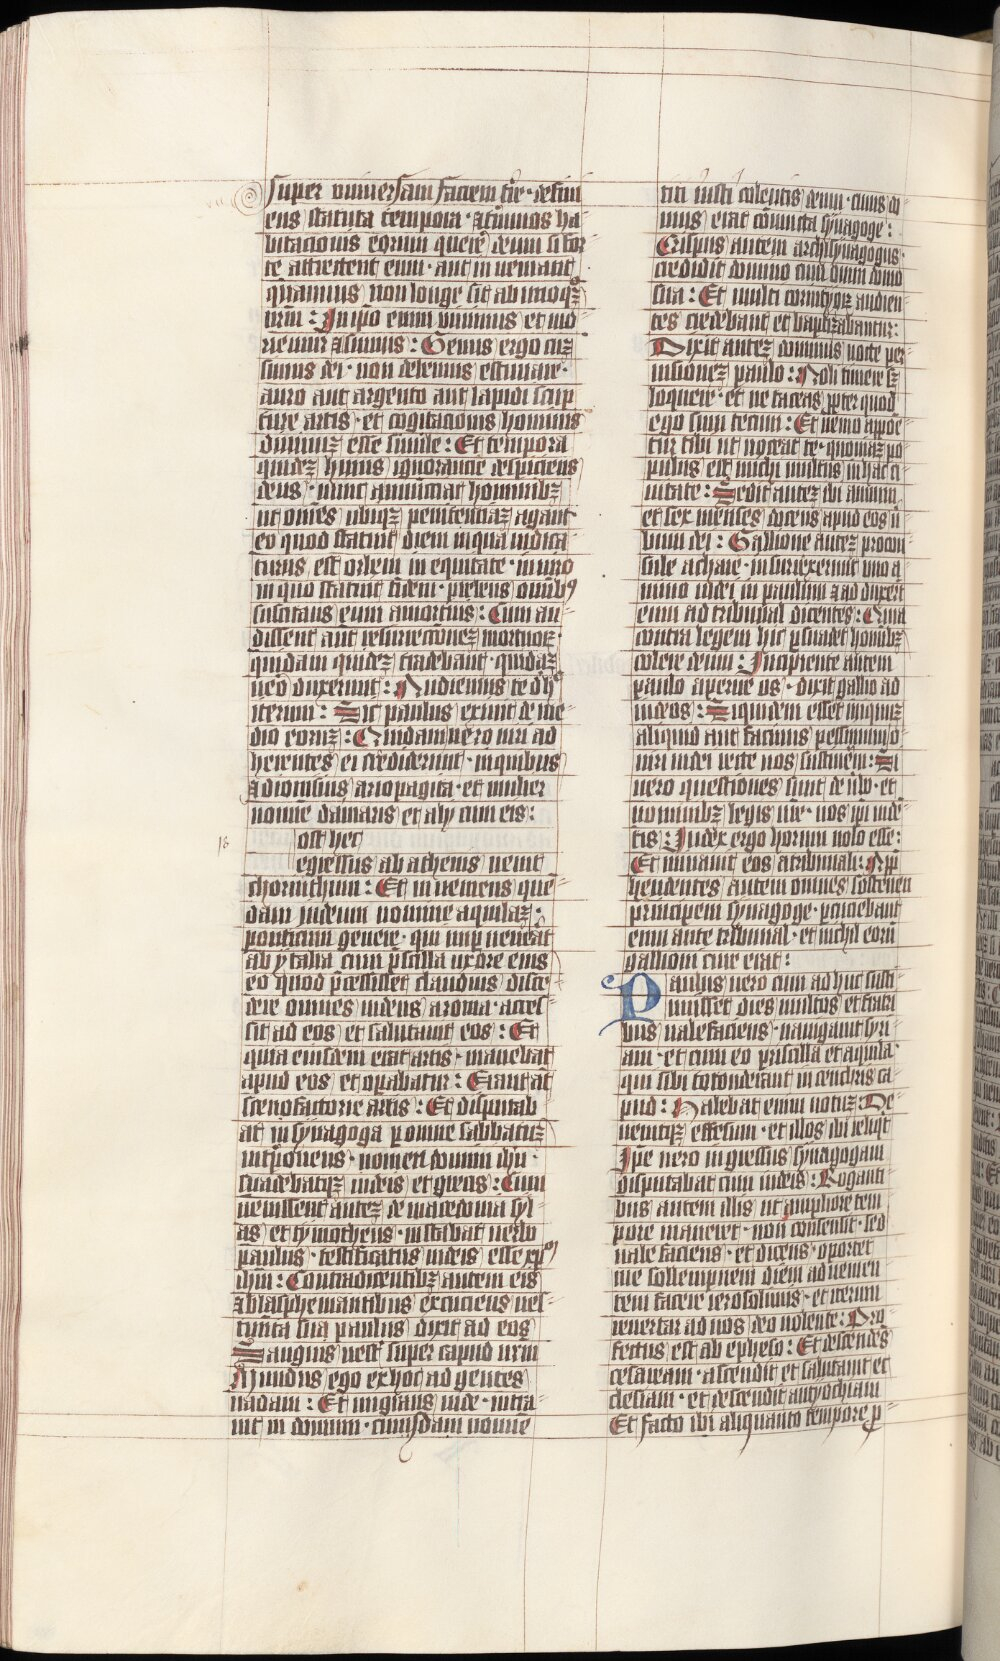 super vniuersam faciem tre · defini
ens statuta tempora · & t̄minos ha
bitacionis eorum querẽ deum si for
te attrectent eum · aut inueniant
quamuis non longe sit ab unoq̄ꝫ
nr̄m : In ip̄o enim viuimus et mo
uemur & sumus : Genus ergo cuꝫ
simus dei · non debemus estimare ·
auro aut argento aut lapidi sculp
ture artis · et cogitacionis hominis
diuinuꝫ esse simile : Et tempora
quideꝫ huius ignorancie despiciens
deus · nunc annunciat hominibꝫ
ut om̄es ubiqꝫ penitenciaꝫ agant
eo quod statuit diem in qua iudica
turus est orbem in equitate · in uiro
in quo statuit fidem · prebens om̄ibꝰ
suscitans eum amortuis : Cum au
dissent aut̄ resurrect̄oneꝫ mortuoꝝ ·
quidam quideꝫ irridebant · quidaꝫ
uero dixerunt : Audiemus te de hͦ
iterum : Sic paulus exiuit de me
dio eoruꝫ : Quidam uero uiri ad
herentes ei crediderunt · in quibus
& dionisius ariopagita · et mulier
nomine damaris et alij cum eis :
18 ost hec
egressus ab athenis uenit
chorinthum : Et inueniens que
dam iudeum nomine aquilaꝫ ·
ponticum genere · qui nup uenerat
ab ytalia cum p̄scilla uxore eius
eo quod p̄cessisset claudius disce
dere omnes iudeos a roma · acces
sit ad eos et salutauit eos : Et
quia eiusdem erat artis · manebat
apud eos et oꝑabatur : Erant aut̄
scenofactorie artis : Et disputab
at in synagoga ꝑ omne sabbatuꝫ
int̄ponens · nomen domini ihu ·
suadebatqꝫ iudeis et grecis : Cum
uenissent auteꝫ de macedonia syl
as et tymotheus · instabat uerbo
paulus · testificatus iudeis esse xp̄m
ihm̄ : Contradicentibꝫ autem eis
& blasphemantibus excuciens ues
timenta sua paulus dixit ad eos
Sanguis uest̄ super capud ur̄m
Mundus ego ex hoc ad gentes
uadam : Et migrans inde · intra
uit in domum · cuiusdam nomine
titi iusti colentis deum · cuius do
mus erat coniuncta synagoge :
Crispus autem archisynagogus ·
credidit domino cum omni domo
sua : Et multi corinthyoꝝ audien
tes credebant et baptizabantur :
Dixit auteꝫ dominus nocte per
uisioneꝫ paulo : Noli timere sꝫ
loquere · et ne taceas ꝓpter quod
ego sum tecum : Et nemo appōe
tur tibi ut noceat te · quoniaꝫ po
pulus est michi multus in hac ci
uitate : Sedit auteꝫ ibi annum
et sex menses docens apud eos u̅
bum dei : Gallione auteꝫ procon
sule achaie · insurrexerunt uno a
nimo iudei in paulum & adduxert̄
eum ad tribunal dicentes : Quia
contra legem hic ꝑsuadet hom̄ibꝫ
colere deum : Incipiente autem
paulo aperire os · dixit gallio ad
iudeos : Siquidem esset iniquuꝫ
aliquid aut facinus pessimum o
uiri iudei recte uos sustinerem : Si
uero questiones sunt de u̅bo · et
nominibꝫ legis ur̄e · uos ip̄i uide
tis : Iudex ergo horum nolo esse :
Et minauit eos a tribunali : App̄
hendentes autem omnes sostenen
principem synagoge · ꝑcuciebant
eum ante tribunal · et nichil eorū
gallioni cure erat :
Paulus uero cum adhuc susti
nuisset dies multos et fratri
bus ualefaciens · nauigauit syri
am · et cum eo priscilla et aquila ·
qui sibi totonderant in cenchris ca
pud : Habebat enim uotuꝫ : De
uenitqꝫ effesum · et illos ibi reliqt̄
Ipse uero ingressus synagogam
disputabat cum iudeis : Roganti
bus autem illis ut ampliore tem
pore maneret · non consensit · sed
uale faciens · et dicens · oportet
me sollempnem diem aduenien
tem facere ierosolimis · et iterum
reuertar ad uos deo uolente : Pro
fectus est ab epheso : Et descendēs
cesaream · ascendit et salutauit ec
clesiam · et descendit anthyochiam
Et facto ibi aliquanto tempore ꝓ